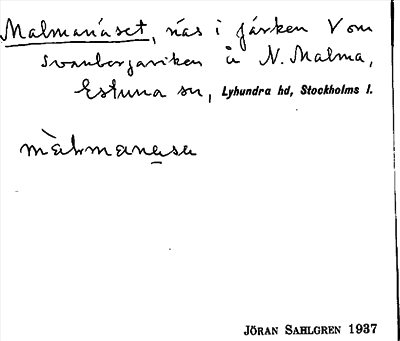 Malmanäset, näs i fjärken V om
Svanbergaviken å N. Malma,
Estuna sn, Lyhundra hd, Stockholms l.
JÖRAN SAHLGREN 1937